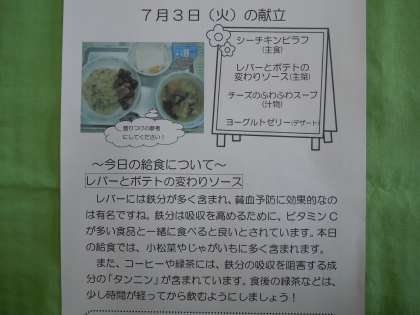 7月3日（火）の献立
シーチキンピラフ
(主食)
レバーとポテトの
変わりソース(主菜)
チーズのふわふわスープ
(汁物)
ヨーグルトゼリー(デザート)
盛りつけの参考
にしてください！
～今日の給食について～
レバーとポテトの変わりソース
レバーには鉄分が多く含まれ、貧血予防に効果的なの
は有名ですね。鉄分は吸収を高めるために、ビタミンC
が多い食品と一緒に食べると良いとされています。本日
の給食では、小松菜やじゃがいもに多く含まれます。
また、コーヒーや緑茶には、鉄分の吸収を阻害する成
分の「タンニン」が含まれています。食後の緑茶などは、
少し時間が経ってから飲むようにしましょう！